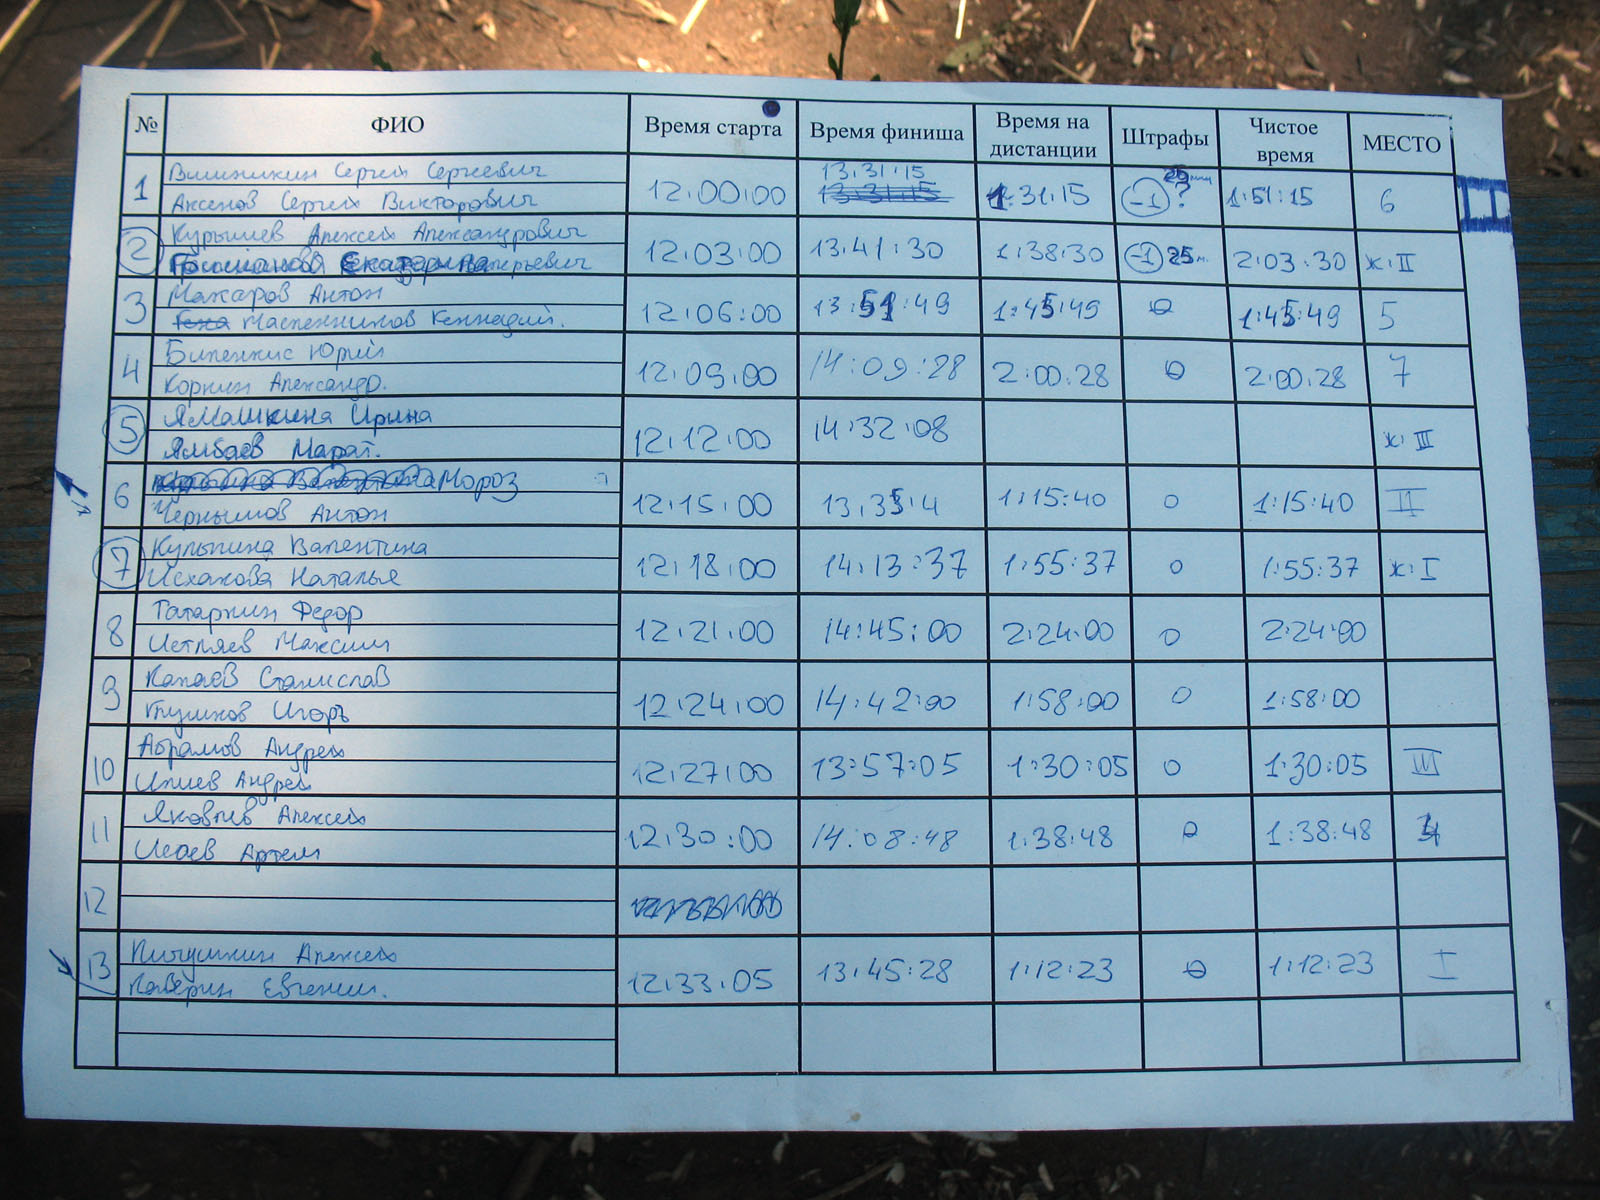 № ФИО Время старта Время финиша Время на дистанции Штрафы Чистое время МЕСТО
1 Сергей Сергеевич 12:00:00 13.31.15 1:31:15 -1 ? 20 мин 1:51:15 6
Аксенов Сергей Викторович
2 Курышев Алексей Александрович 12:03:00 13:41:30 1:38:30 -1 25 м. 2:03:30 ж.II
Екатерина Валерьевич
3 Макаров Антон 12:06:00 13:51:49 1:45:49 0 1:45:49 5
Масленников Геннадий.
4 Биленкис Юрий 12:09:00 14:09:28 2:00:28 0 2:00:28 7
Коркин Александр.
5 Ямашкина Ирина 12:12:00 14:32:08 ж. III
Ямбаев Марат.
6 Мороз 12:15:00 13.35.4 1:15:40 0 1:15:40 II
Чернышов Антон
7 Кулыгина Валентина 12:18:00 14:13:37 1:55:37 0 1:55:37 ж.I
Исхакова Наталья
8 Татаркин Федор 12:21:00 14:45:00 2:24:00 0 2:24:00
Максим
9 Капаев Станислав 12:24:00 14:42:00 1:58:00 0 1:58:00
Глушков Игорь
10 Абрамов Андрей 12:27:00 13:57:05 1:30:05 0 1:30:05 III
Андрей
11 Яковлев Алексей 12:30:00 14:08:48 1:38:48 0 1:38:48 4
Исаев Артем
12
13 Пичушкин Алексей 12:33:05 13:45:28 1:12:23 0 1:12:23 I
Каверин Евгений.
II